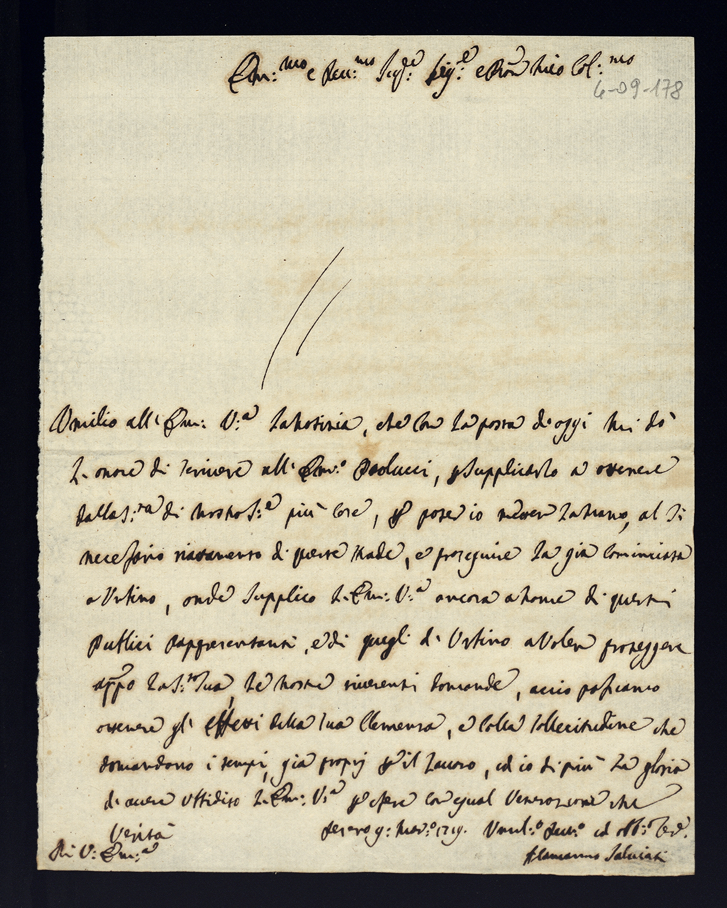 Em:mo e Rev:mo Sig:re Sig:re e Pron mio Col:mo
6-09-178
Umilio all'Em: V:a la notizia, che con la posta di oggi mi dò
l'onore di scrivere all'Em:o Paolucci, supplicarlo a ottenere
dalla S:tà di Nostro S:e più cose, poter io mano, al sì
necessario riattamento di queste strade, e proseguire la già cominciata
a Urbino, onde supplico l'Em: V:a ancora a nome di questi
Publici Rappresentanti, e di quegli di Urbino a voler proteggere
appo la S:tà Sua, le nostre riverenti domande, acciò possiamo
ottenere gl'effetti della sua Clemenza, e colla sollecitudine che
domandano i tempi, già proprj il lavoro, ed io di più la gloria
di avere ubbidito l'Em: V:a essere con egual venerazione che
verità
Di V: Em:a
Pesaro 9: 1719. Umil:o Dev:o ed obb:o
Alamanno Salviati